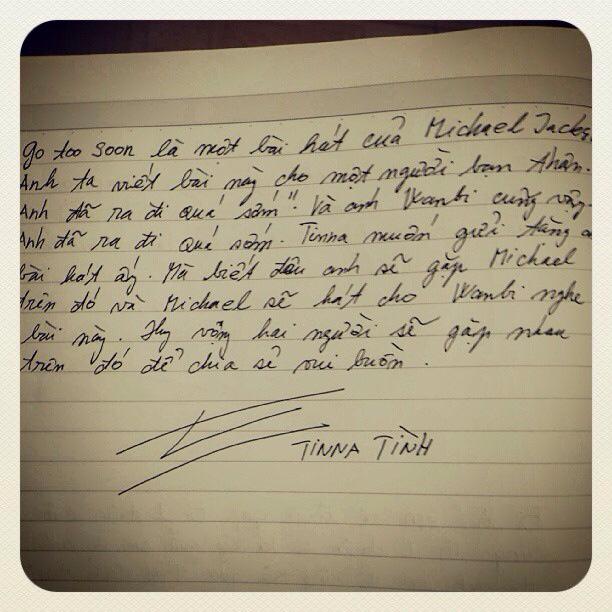 go too soon là một bài hát của Michael Jacks
Anh ta viết bài này cho một người bạn thân.
Anh đã ra đi quá sớm". Và anh Wanbi cũng vậy.
Anh đã ra đi quá sớm. Tinna muốn gửi tặng a
bài hát ấy. Mà biết đâu anh sẽ gặp Michael
trên đó và Michael sẽ hát cho Wanbi nghe
bài này. Hy vọng hai người sẽ gặp nhau
trên đó để chia sẻ vui buồn.
TINNA TÌNH